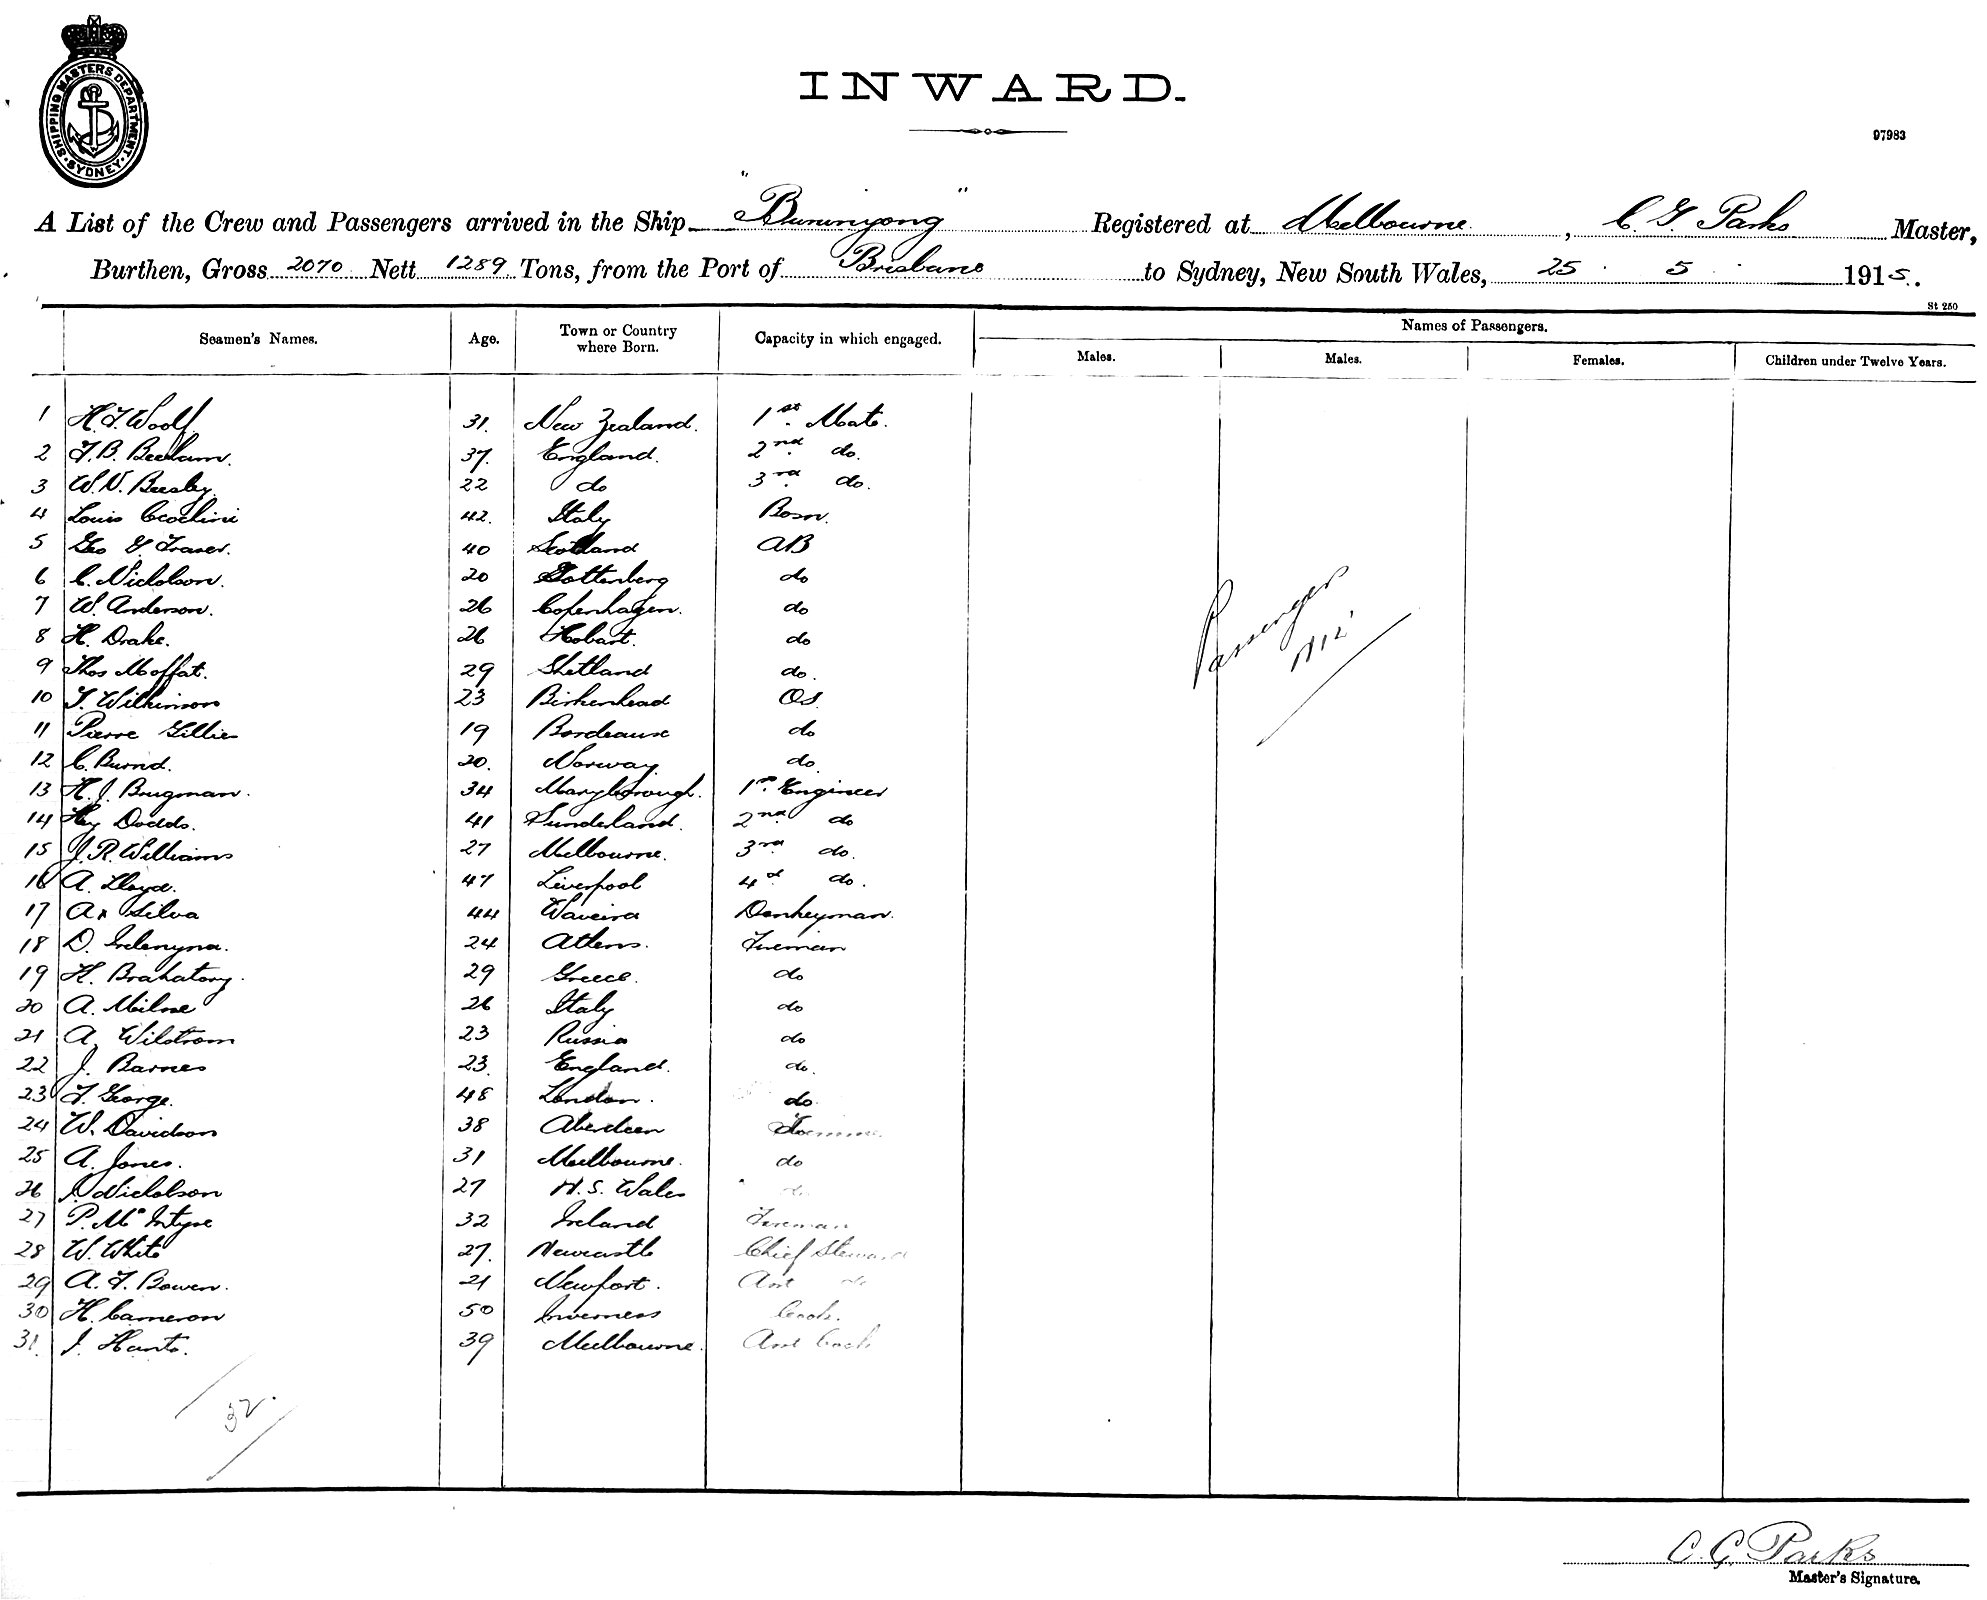 SHIPPING MASTERS DEPARTMENT. SYDNEY.
INWARD.
97983
A List of the Crew and Passengers arrived in the Ship "Buninyong" Registered at Melbourne, C. G. Parks Master,
Burthen, Gross 2070 Nett 1289 Tons, from the Port of Brisbane to Sydney, New South Wales, 25 . 5 . 1915.
St 250
Seamen's Names. Age. Town or Country where Born. Capacity in which engaged. Names of Passengers.
Males. Males. Females. Children under Twelve Years.
1 H. F. Woolf 31. New Zealand. 1st. Mate.
2 F. B. Beeham. 37. England. 2nd. do.
3 W. N. Beesley. 22 do 3rd. do.
4 Louis 42. Italy Bosn.
5 Geo Fraser. 40 Scotland AB
6 C. Nicholson. 20 Gottenberg do
7 W. Anderson. 26 Copenhagen. do
8 H. Drake. 26 Hobart. do
9 Thos Moffat. 29 Shetland do.
10 T. Wilkinson 23 Birkenhead OS.
11 Pierre Gillie 19 Bordeaux do
12 C. Burnd. 20. Norway do.
13 H. J. Brugman. 34 Maryborough. 1st. Engineer
14 Hy Dodds. 41 Sunderland. 2nd. do
15 J. R. Williams 27 Melbourne. 3rd. do.
16 A. Lloyd. 47 Liverpool 4th do.
17 A. Silva 44 Donkeyman.
18 D. 24 Athens. Fireman
19 H. Brahatory. 29 Greece. do
20 A. Milne 26 Italy do
21 A. Wilstrom 23 Russia do
22 J. Barnes 23. England. do.
23 F. George. 48 London. do.
24 W. Davidson 38 Aberdeen
25 A. Jones. 31 Melbourne. do
26 J. Nicholson 27 N. S. Wales do
27 P. Mc Intyre 32 Ireland Fireman
28 W. White 27. Newcastle Chief Steward
29 A. F. Bowen. 21 Newport. Asst do
30 H. Cameron 50 Inverness Cook.
31. J. Hants. 39 Melbourne. Asst Cook
Passenger
Nil
32.
C. G. Parks
Master's Signature.